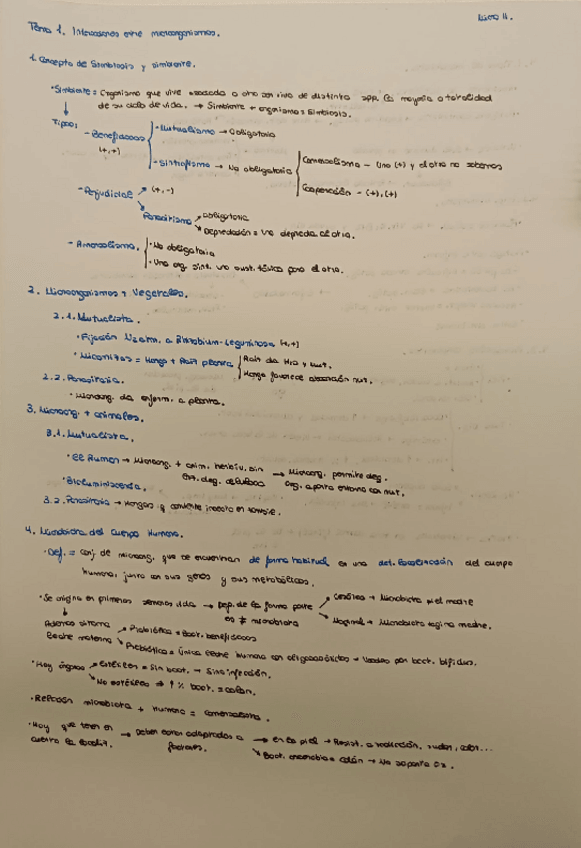 Tema 1. Interacciones entre microorganismos.
1. Concepto de Simbiosis y simbionte.
· Simbionte = Organismo que vive asociado a otro ser vivo de distinta spp. la mayoría o totalidad
de su ciclo de vida. → Simbionte + organismo = Simbiosis.
Tipos:
- Beneficiosos (+,+)
· Mutualismo → Obligatoria
· Sintrofismo → No obligatoria
Comensalismo - Uno (+) y el otro no
Cooperación - (+),(+)
- Perjudicial → (+,-)
Parasitismo → Obligatoria
Depredación = Uno depreda al otro.
- Amensalismo.
· No obligatoria
· Uno org. sint. una sust. tóxica para el otro.
2. Microorganismos y Vegetales.
2.1. Mutualista.
· Fijación N2 atm. a Rhizobium-leguminosa (+,+)
· Micorrizas = Hongo + Raíz planta
Raíz da H2O y nut.
Hongo favorece absorción nut.
2.2. Parasitaria.
· Microorg. da enferm. a planta.
3. Microorg. + animales.
3.1. Mutualista.
· El Rumen → Microorg. + anim. herbív. sin → Microorg. permite deg.
enz. deg. celulosa Org. aporta entorno con nut.
· Bioluminiscencia.
3.2. Parasitaria → Hongos q convierte insecto en zombie.
4. Microbiota del Cuerpo Humano.
· Def. = conj. de microorg. que se encuentran de forma habitual en una det. localización del cuerpo
humano, junto con sus genes y sus metabólicos.
· Se origina en primeras semanas vida → Dep. de la forma parto → Cesárea → Microbiota piel madre
es ≠ microbiota → Vaginal → Microbiota vagina madre.
Leche materna → Probiótica = Bact. beneficiosas
Prebiótica = única leche humana con oligosacáridos → Usados por bact. bífidus.
· Hay órganos → Estériles = Sin bact. → Sino infección.
No estériles → ↑ % bact. = colon.
· Relación microbiota + Humano = Comensalista.
· Hay que tener en → Deben estar adaptados a → en la piel → Resist. a radiación, sudor, calor...
cuenta la localiz. factores. → Bact. anaerobia = colon → No soporta O2.